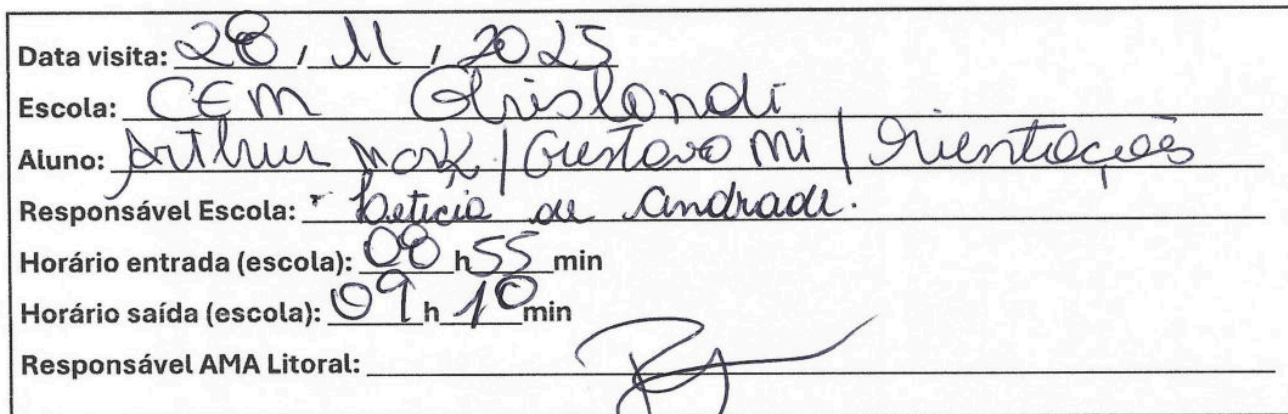 Data visita: 28 / 11 / 2025
Escola: CEM Ghislandi
Aluno: Arthur Mark | Gustavo Mi | Orientações
Responsável Escola: Leticia de Andrade.
Horário entrada (escola): 08 h 55 min
Horário saída (escola): 09 h 10 min
Responsável AMA Litoral: